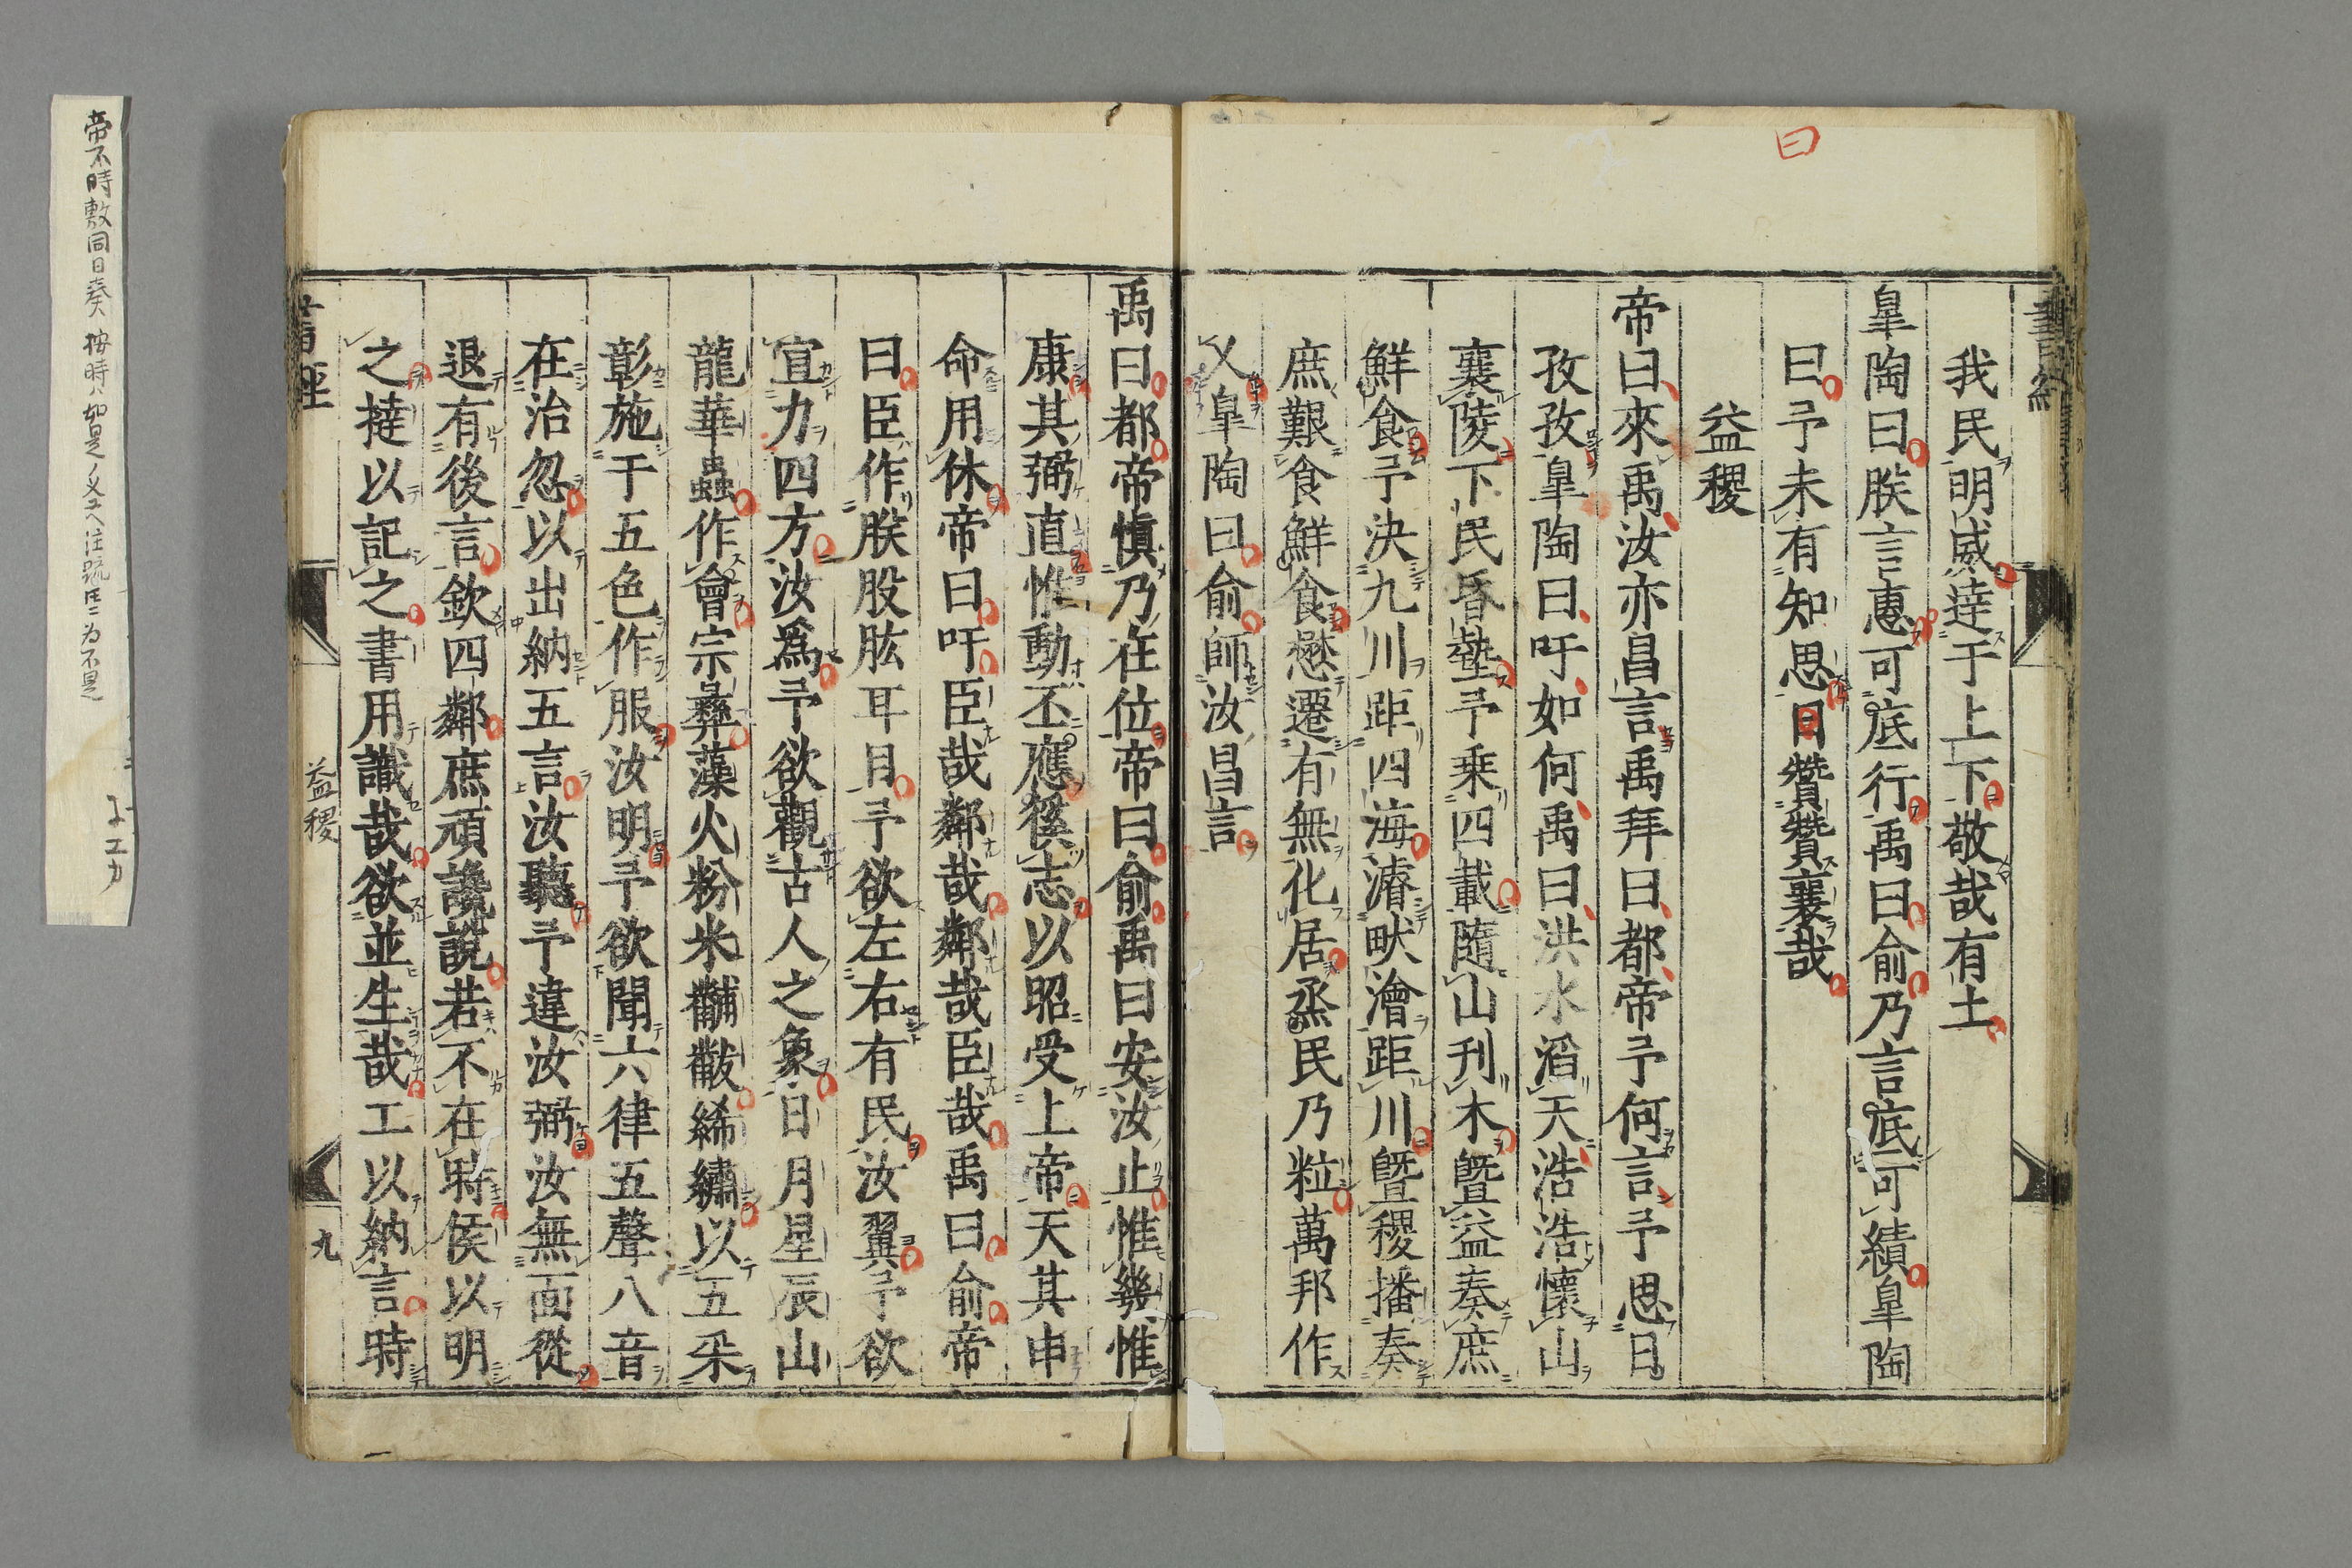 曰
書經
我民明威達于上下敬哉有土
皐陶曰朕言惠可底行禹曰俞乃言底可績皐陶
曰予未有知思日贊贊襄哉
益稷
帝曰來禹汝亦昌言禹拜曰都帝予何言予思日
孜孜皐陶曰吁如何禹曰洪水滔天浩浩懷山
襄陵下民昏墊予乗四載隨山刋木曁益奏庶
鮮食予決九川距四海濬畎澮距川曁稷播奏
庶艱食鮮食懋遷有無化居烝民乃粒萬邦作
乂皐陶曰俞師汝昌言
禹曰都帝慎乃在位帝曰俞禹曰安汝止惟幾惟
康其弼直惟動丕應徯志以昭受上帝天其申
命用休帝曰吁臣哉鄰哉鄰哉臣哉禹曰俞帝
曰臣作朕股肱耳目予欲左右有民汝翼予欲
宣力四方汝爲予欲觀古人之象日月星辰山
龍華蟲作會宗彝藻火粉米黼黻絺繡以五采
彰施于五色作服汝明予欲聞六律五聲八音
在治忽以出納五言汝聽予違汝弼汝無面從
退有後言欽四鄰庶頑讒說若不在時侯以明
之撻以記之書用識哉欲並生哉工以納言時
書經
益稷
九
帝不時敷同日奏 按時ハ如是ノ義 注疏
為不是